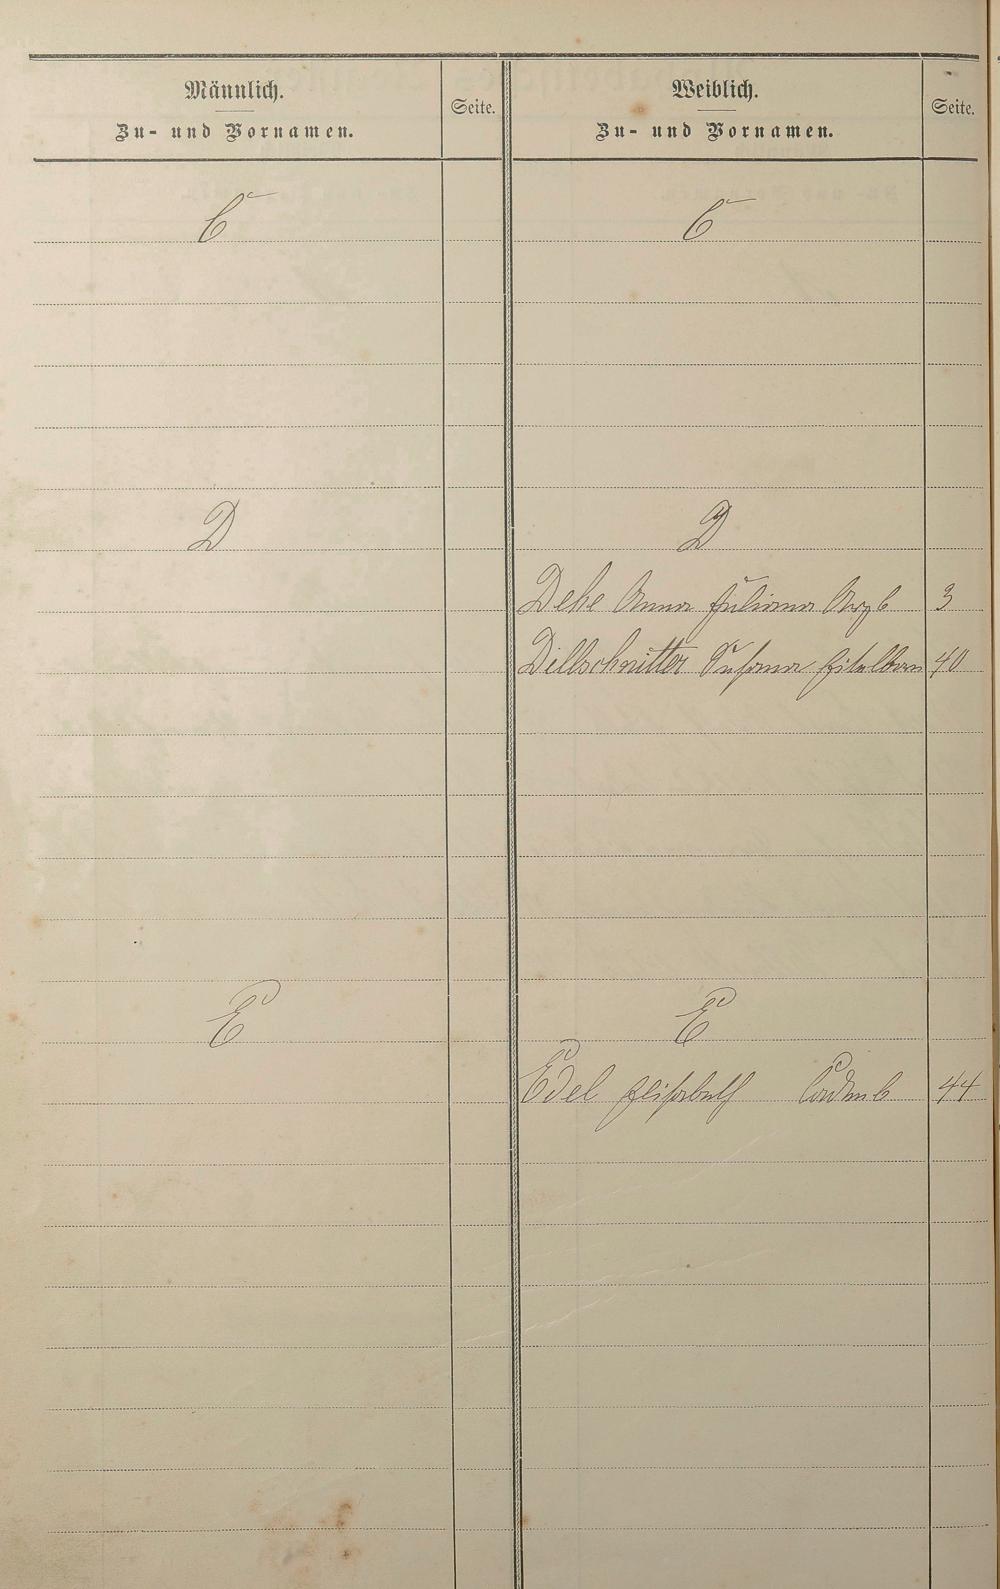 Männlich.
Zu- und Vornamen.
Seite.
Weiblich.
Zu- und Vornamen.
Seite.
C
C
D
D
Dehe Anna Juliana 3
Dillschnitter Susana 40
E
E
Edel Elisabeth 44